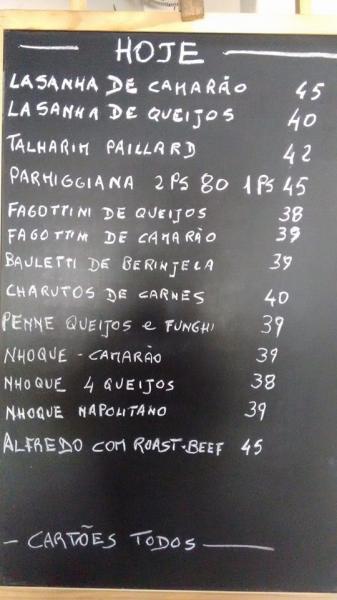 HOJE
LASANHA DE CAMARÃO 45
LASANHA DE QUEIJOS 40
TALHARIM PAILLARD 42
PARMIGGIANA 2PS 80 1PS 45
FAGOTTINI DE QUEIJOS 38
FAGOTTINI DE CAMARÃO 39
BAULETTI DE BERINJELA 39
CHARUTOS DE CARNES 40
PENNE QUEIJOS e FUNGHI 39
NHOQUE - CAMARÃO 39
NHOQUE 4 QUEIJOS 38
NHOQUE NAPOLITANO 39
ALFREDO COM ROAST-BEEF 45
- CARTÕES TODOS -